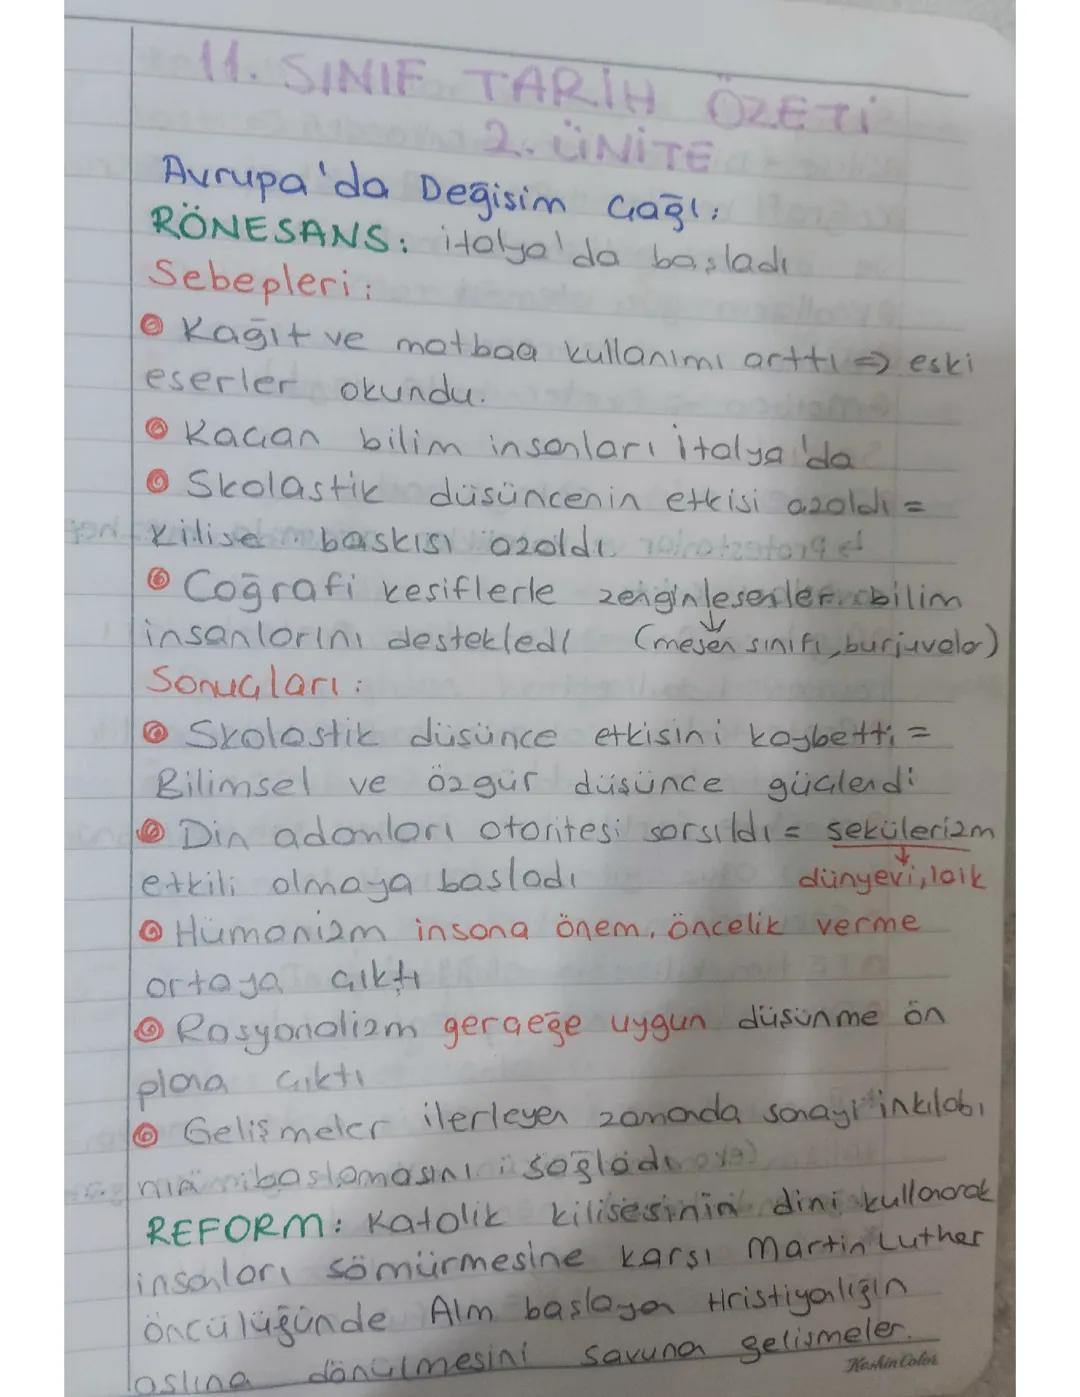 11. SINIF TARİH ÖZETİ
2. ÜNİTE
Avrupa'da Değişim Çağı:
RÖNESANS: italya'da başladı
Sebepleri:
Kağıt ve matbaa kullanımı arttı => eski
eserler okundu.
Kaçan bilim insanları italya'da
Skolastik düşüncenin etkisi azaldı =
kilise baskısı azaldı
Coğrafi keşiflerle zenginleşenler bilim
insanlarını destekledi (meşen sınıfı, burjuvalar)
Sonuçları:
Skolastik düşünce etkisini kaybetti =
Bilimsel ve özgür düşünce güçlendi
Din adamları otoritesi sarsıldı = sekülerizm
etkili olmaya başladı dünyevi, laik
Hümanizm insana önem, öncelik verme
ortaya çıktı
Rasyonalizm gerçeğe uygun düşünme ön
plana çıktı
Gelişmeler ilerleyen zamanda sanayi inkılabı
nın başlamasını sağladı
REFORM: Katolik kilisesinin dini kullanarak
insanları sömürmesine karşı Martin Luther
öncülüğünde Alm başlayan Hristiyanlığın
aslına dönülmesini savunan gelişmeler.
KeskinColor